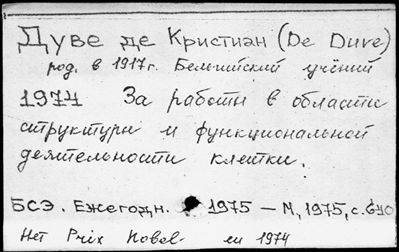 Дуве де Кристиан (De Duve)
род. в 1917г. Бельгийский учёный
1974 За работы в области
структуры и функциональной
деятельности клетки.
БСЭ. Ежегодн. 1975 – М, 1975, с. 610
Нет Prix Nobel en 1974